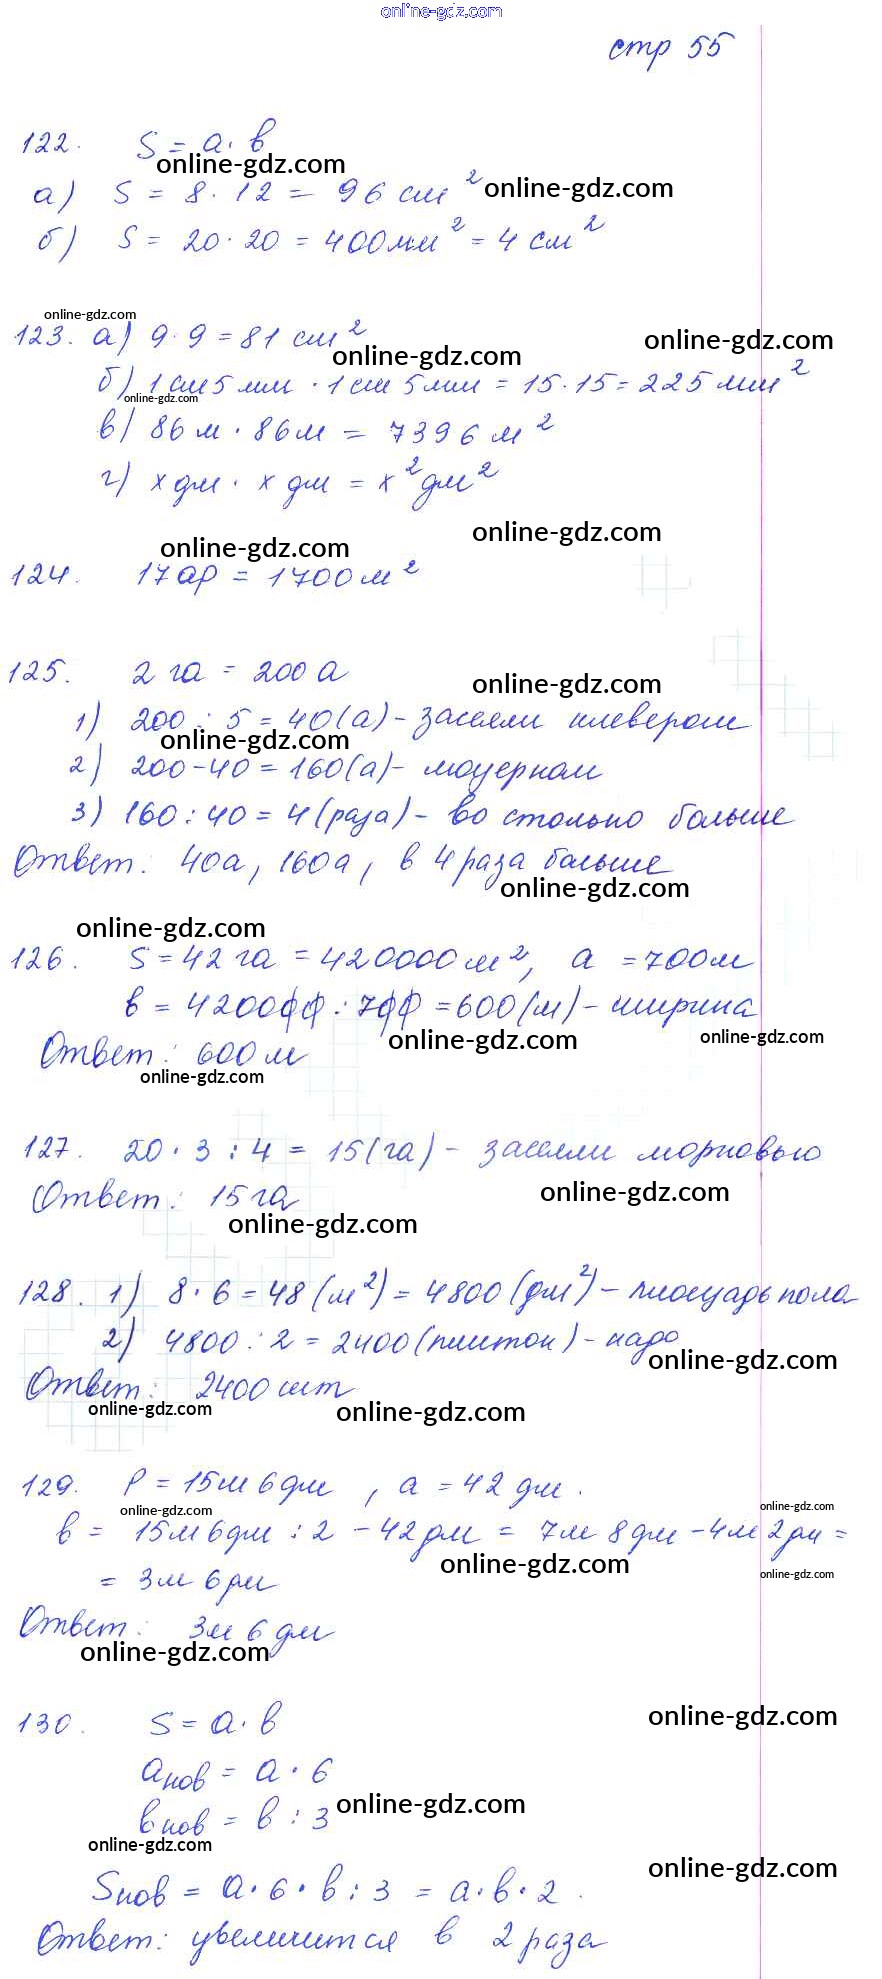 online-gdz.com
стр 55
122. S = a · b
online-gdz.com
а) S = 8 · 12 = 96 см² online-gdz.com
б) S = 20 · 20 = 400 мм² = 4 см²
online-gdz.com
123. а) 9 · 9 = 81 см² online-gdz.com
online-gdz.com
б) 1 см 5 мм · 1 см 5 мм = 15 · 15 = 225 мм²
online-gdz.com
в) 86 м · 86 м = 7396 м²
г) x дм · x дм = x² дм²
online-gdz.com
online-gdz.com
124. 17 ар = 1700 м²
125. 2 га = 200 а
online-gdz.com
1) 200 : 5 = 40 (а) - засеяли клевером
online-gdz.com
2) 200 - 40 = 160 (а) - люцерной
3) 160 : 40 = 4 (раза) - во столько больше
Ответ: 40а, 160а, в 4 раза больше
online-gdz.com
online-gdz.com
126. S = 42 га = 420000 м², a = 700 м
b = 420000 : 700 = 600 (м) - ширина
online-gdz.com online-gdz.com
Ответ: 600 м
online-gdz.com
127. 20 · 3 : 4 = 15 (га) - засеяли морковью
Ответ: 15 га online-gdz.com
online-gdz.com
128. 1) 8 · 6 = 48 (м²) = 4800 (дм²) - площадь пола
2) 4800 : 2 = 2400 (плиток) - надо
online-gdz.com
Ответ: 2400 шт
online-gdz.com online-gdz.com
129. P = 15 м 6 дм , a = 42 дм.
online-gdz.com online-gdz.com
b = 15 м 6 дм : 2 - 42 дм = 7 м 8 дм - 4 м 2 дм =
online-gdz.com online-gdz.com
= 3 м 6 дм
Ответ: 3 м 6 дм
online-gdz.com
130. S = a · b online-gdz.com
a нов = a · 6
b нов = b : 3 online-gdz.com
online-gdz.com
online-gdz.com
S нов = a · 6 · b : 3 = a · b · 2.
Ответ: увеличится в 2 раза